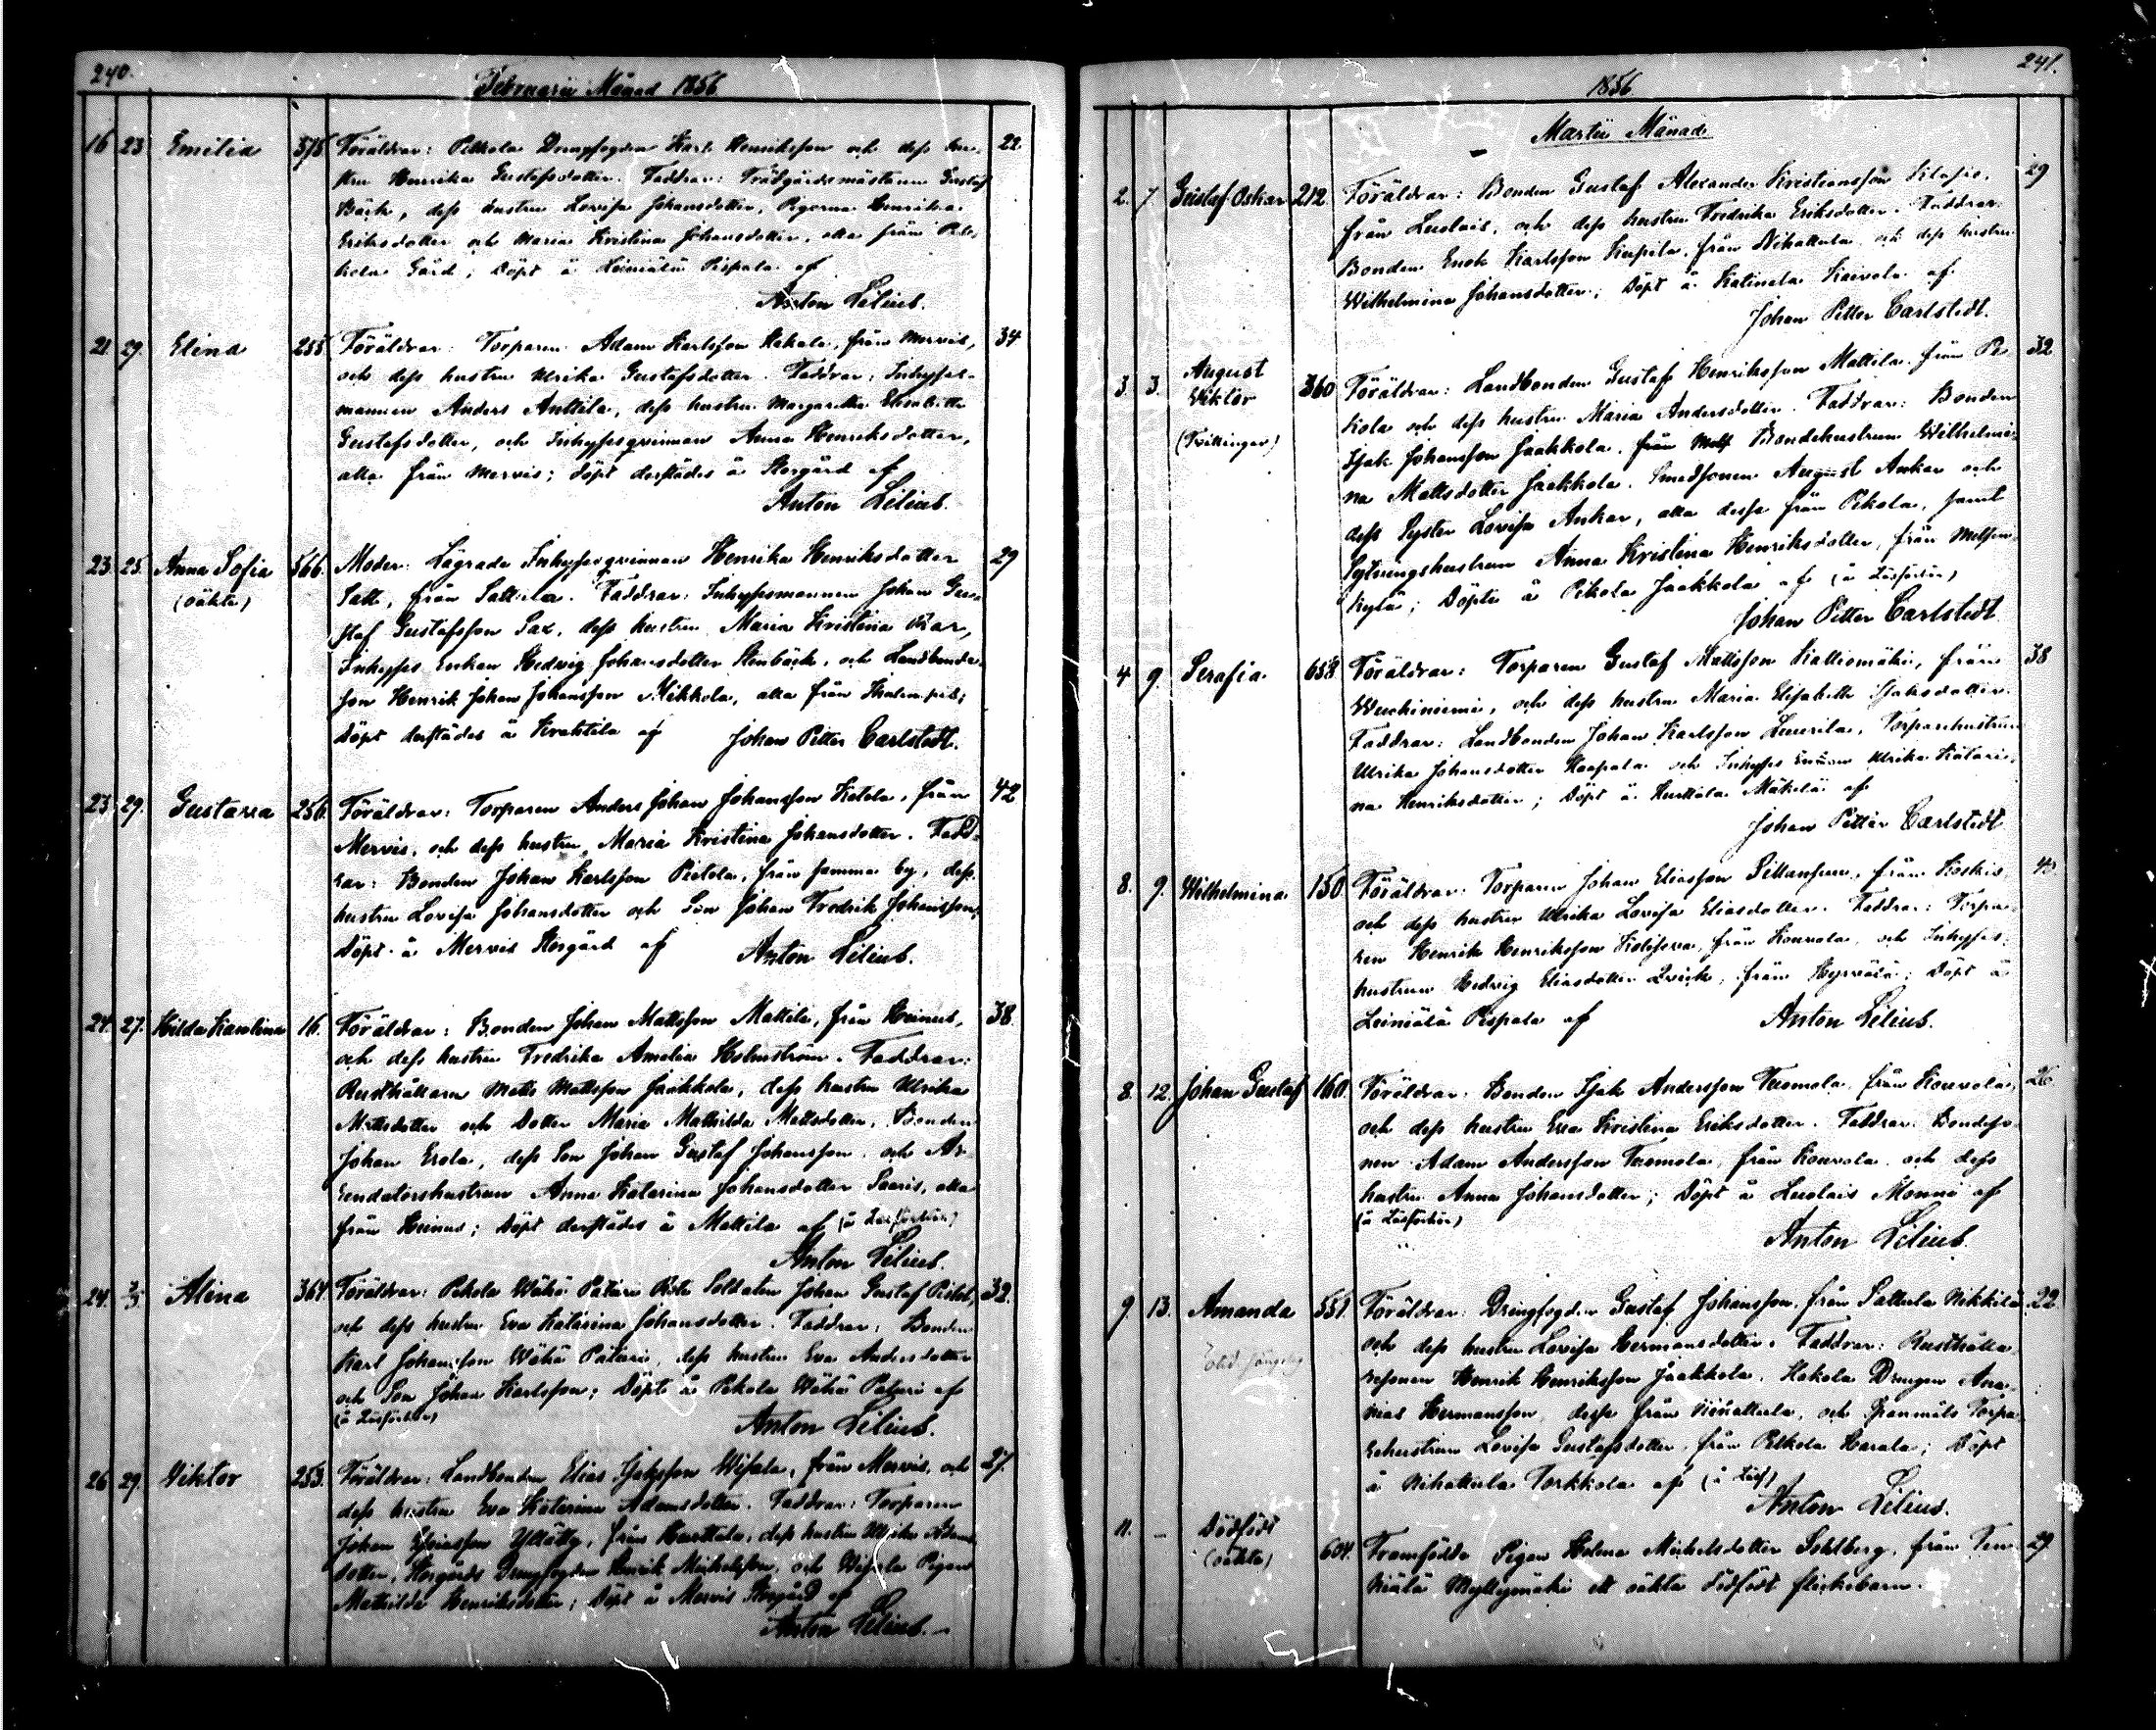 240.
Februarii Månad 1856
16 23 Emilia 578 Föräldrar: Pelkola Drengfogden Karl Henriksson och dess hu- 22
stru Henrika Gustafsdotter. Faddrar: Trädgårdsmästaren Gustaf
Bäck, dess hustru Lovisa Johansdotter, Pigorna Henrika
Eriksdotter och Maria Kristina Johansdotter, alla från Pel-
kola Gård; Döpt å Leiniälä Pispala af
Anton Lilius.
21 29. Elina 255 Föräldrar: Torparen Adam Karlsson Hakala, från Mervis, 34
och dess hustru Ulrika Gustafsdotter. Faddrar: Inhyses-
mannen Anders Anttila, dess hustru Margaretha Elisabeth
Gustafsdotter, och Inhysesqvinnan Anna Henriksdotter,
alla från Mervis; döpt derstädes å Storgård af
Anton Lilius.
23. 25. Anna Sofia 566. Moder: Lägrade Inhysesqvinnan Henrika Henriksdotter 29
(oäkta) Satt, från Sattula. Faddrar: Inhysesmannen Johan Gu-
staf Gustafsson Sax, dess hustru Maria Kristina
Inhyses Enkan Hedvig Johansdotter Stenbäck, och Landbonde-
son Henrik Johan Johansson Mikkola, alla från
Döpt derstädes å Krahtila af Johan Petter Carlstedt.
23 29. Gustava 256. Föräldrar: Torparen Anders Johan Johansson Katola, från 42
Mervis, och dess hustru Maria Kristina Johansdotter. Fadd-
rar: Bonden Johan Karlsson Pietola, från samma by, dess
hustru Lovisa Johansdotter och Son Johan Fredrik Johansson,
Döpt å Mervis Storgård af Anton Lilius.
24. 27. Hilda Karolina 16. Föräldrar: Bonden Johan Mattsson Mattila, från Heinus, 38.
och dess hustru Fredrika Amalia Holmström. Faddrar:
Rusthållaren Matts Mattsson Jaakkola, dess hustru Ulrika
Mattsdotter och Dotter Maria Mathilda Mattsdotter, Bonden
Johan Erola, dess Son Johan Gustaf Johansson, och Ar-
rendatorshustrun Anna Katarina Johansdotter Saaris, alla
från Heinus; Döpt derstädes å Mattila af (å Läsförhör)
Anton Lilius.
24. 2/3. Alina 364. Föräldrar: Pekola Wähä Pätäri Rote Soldaten Johan Gustaf Pistol, 32.
och dess hustru Eva Katarina Johansdotter. Faddrar: Bonden
Karl Johansson Wähä Pätäri, dess hustru Eva Andersdotter
och Son Johan Karlsson; Döpt å Pekola Wähä Pätäri af
(å Läsförhör) Anton Lilius.
26 29. Viktor 253. Föräldrar: Landbonden Elias Isaksson Wisala, från Mervis, och 27.
dess hustru Eva Katarina Adamsdotter. Faddrar: Torparen
Johan från Harttala, dess hustru Ulrika Adams-
dotter, Storgårds Drengfogden Henrik Michelsson, och Wisala Pigan
Mathilda Henriksdotter; Döpt å Mervis Storgård af
Anton Lilius.
241.
1856
Martii Månad
2. 7. Gustaf Oskar 212 Föräldrar: Bonden Gustaf Alexander Kristiansson 29
från Luolais, och dess hustru Fredrika Eriksdotter. Faddrar:
Bonden Enok Karlsson från Nihattula och dess hustru
Wilhelmina Johansdotter; Döpt å Katinala Kaivola af
Johan Petter Carlstedt.
3. 3. August 360 Föräldrar: Landbonden Gustaf Henriksson Mattila från Pe- 32
Viktor kola och dess hustru Maria Andersdotter. Faddrar: Bonden
(Tvillingar) Isak Johansson Jaakkola, från Bondehustrun Wilhelmi-
na Mattsdotter Jaakkola, Smedsonen August Ankar och
dess Syster Lovisa Ankar, alla desse från Pekola, samt
Sytningshustrun Anna Kristina Henriksdotter, från
kylä; Döpte å Pekola Jaakkola af (å Läsförhör)
Johan Petter Carlstedt
4 9. Serafia 658 Föräldrar: Torparen Gustaf Mattsson Kalliomäki, från 38
Wuohiniemi, och dess hustru Maria Elisabeth Isaksdotter.
Faddrar: Landbonden Johan Karlsson Torparehustrun
Ulrika Johansdotter Haapala och Inhyses Enkan Ulrika Katari-
na Henriksdotter; Döpt å Hurttala Mäkelä af
Johan Petter Carlstedt
8. 9. Wilhelmina 150 Föräldrar: Torparen Johan Eliasson från 40
och dess hustru Ulrika Lovisa Eliasdotter. Faddrar: Torpa-
ren Henrik Henriksson från Kouvola, och Inhyses-
hustrun Hedvig Eliasdotter från Döpt å
Leiniälä Pispala af Anton Lilius.
8. 12. Johan Gustaf 160. Föräldrar: Bonden Isak Andersson Tuomola, från Kouvola, 26
och dess hustru Eva Kristina Eriksdotter. Faddrar: Bondeso-
nen Adam Andersson Tuomola, från Kouvola och dess
hustru Anna Johansdotter; Döpt å Luolais Monni af
(å Läsförhör)
Anton Lilius.
9. 13. Amanda 551. Föräldrar: Drengfogden Gustaf Johansson, från Sattula Nikkilä 22.
och dess hustru Lovisa Hermansdotter. Faddrar: Rusthålla-
resonen Henrik Henriksson Jaakkola, Hakala Drengen Ana-
nias Hermansson, desse från Nihattula, och Spannmåls Torpa-
rehustrun Lovisa Gustafsdotter, från Pelkola Harala; Döpt
å Nihattula Torkkola af (å Läsf)
Anton Lilius.
11. – Dödfödt
(oäkta) 604. Framfödde Pigan Helena Michelsdotter Sohlberg, från 29.
Myllymäki ett oäkta dödfödt flickebarn.